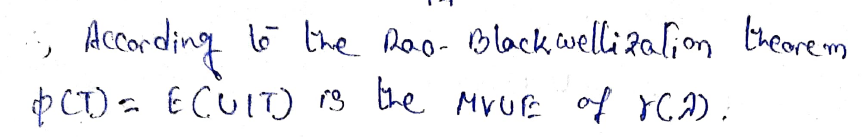 ∴, According to the Rao-Blackwellization theorem
ϕ(T) = E(U|T) is the MVUE of γ(λ).